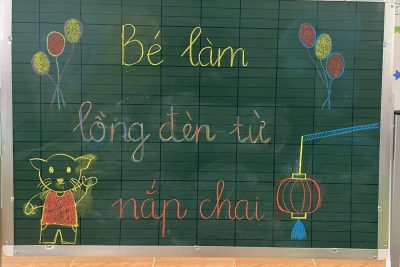 Bé làm
lồng đèn từ
nắp chai